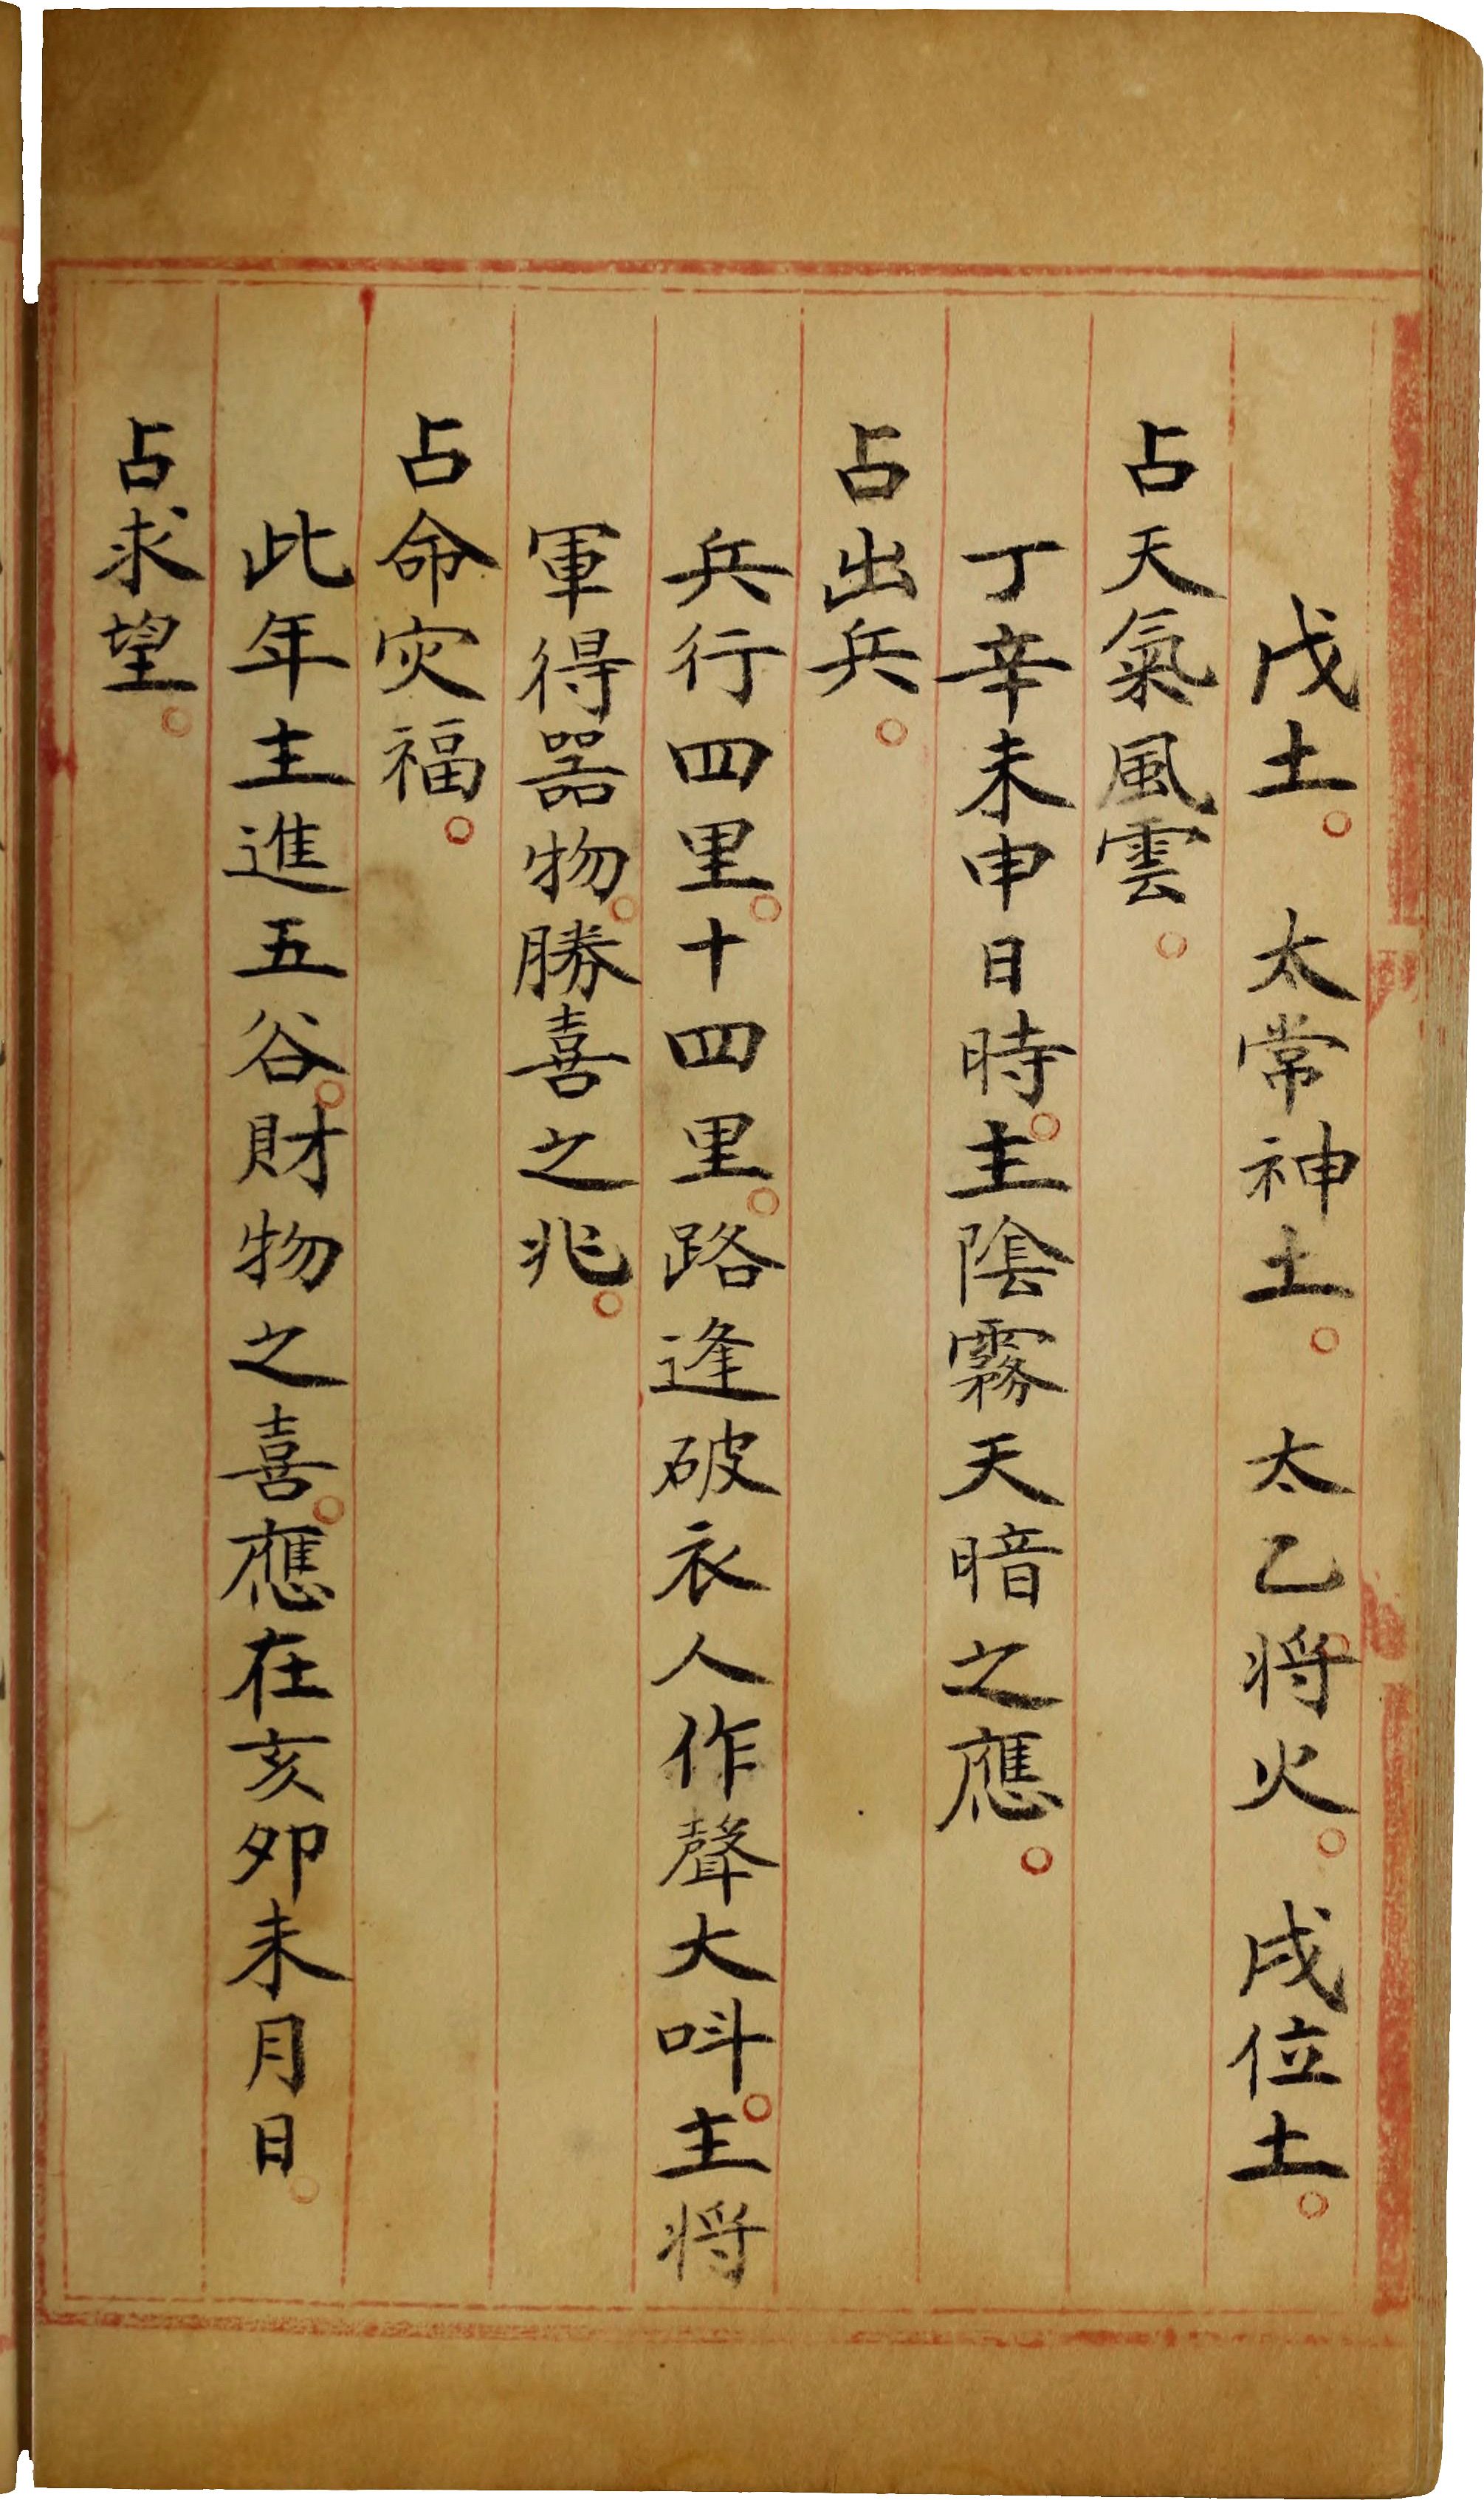 戊土。太常神土。太乙将火。戌位土。
占天氣風雲。
丁辛未申日時。主陰霧天暗之應。
占出兵。
兵行四里。十四里。路逢破衣人作聲大呌。主将
軍得噐物。勝喜之兆。
占命灾福。
此年主進五谷。財物之喜。應在亥卯未月日。
占求望。